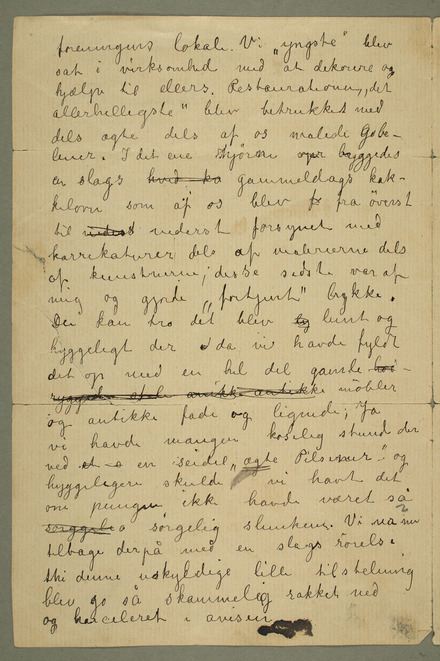 foreningens lokale. Vi „yngste“ blev
sat i virksomhed med at dekorere og
hjælpe til ellers. Restaurationen, „det
allerhelligste“ blev betrukket med
dels ægte dels af os malede Gobe-
liner. I det ene hjørne byggedes
en slags gammeldags kak-
kelovn som af os blev fra øverst
til nederst forsynet med
karrikaturer dels af malerierne dels
af kunstnerne; disse sidste var af
mig og gjorde „fortjent“ lykke.
Du kan tro det blev lunt og
hyggeligt der da vi havde fyldt
det op med en hel del gamle
møbler
og antikke fade og lignende; Ja
vi havde mangen koselig stund der
ved en seidel „ægte Pilsener“ og
hyggeligere skulde vi havt det
om pungen ikke havde været så
sørgelig slunken. Vi
tilbage derpå med en slags
thi denne uskyldige lille tilstelning
blev så skammelig rakket ned
og i avisen